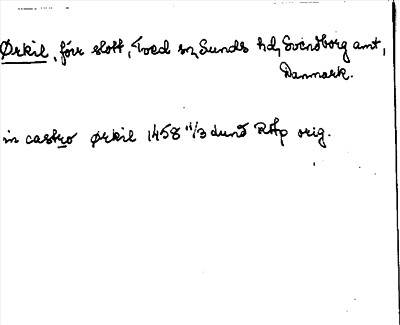 Ørkil, förr slott, Tved sn, Sunds hd, Svendborg amt,
Danmark.
in castro Ørkil 1458 11/3 Lund RAp orig.